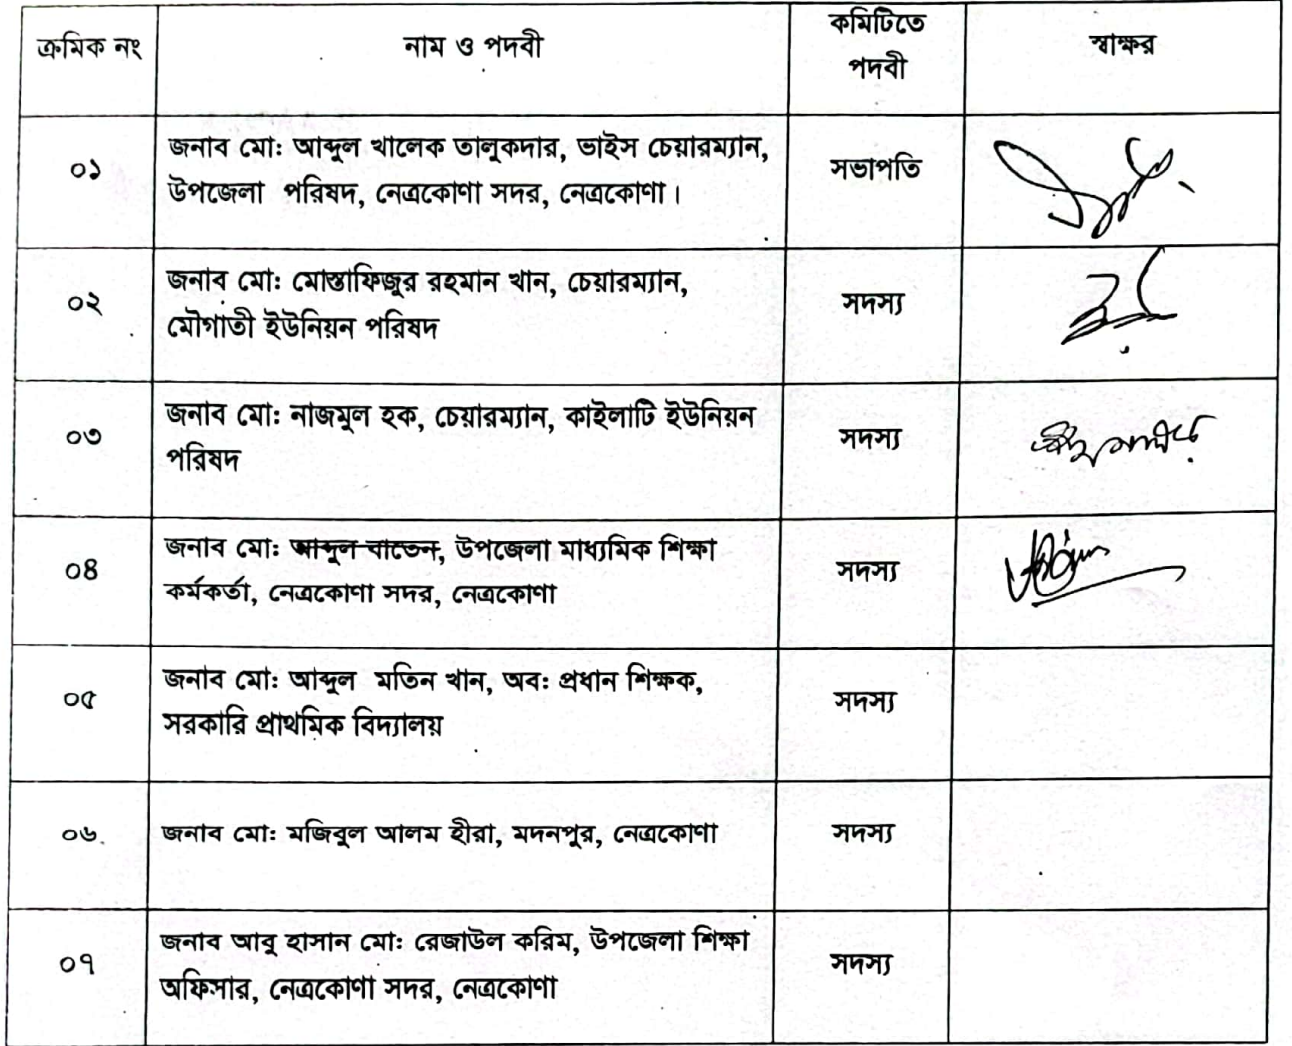 ক্রমিক নং নাম ও পদবী কমিটিতে পদবী স্বাক্ষর
০১ জনাব মো: আব্দুল খালেক তালুকদার, ভাইস চেয়ারম্যান, সভাপতি
উপজেলা পরিষদ, নেত্রকোণা সদর, নেত্রকোণা।
০২ জনাব মো: মোস্তাফিজুর রহমান খান, চেয়ারম্যান, সদস্য
মৌগাতী ইউনিয়ন পরিষদ
০৩ জনাব মো: নাজমুল হক, চেয়ারম্যান, কাইলাটি ইউনিয়ন সদস্য
পরিষদ
০৪ জনাব মো: আব্দুল বাতেন, উপজেলা মাধ্যমিক শিক্ষা সদস্য
কর্মকর্তা, নেত্রকোণা সদর, নেত্রকোণা
০৫ জনাব মো: আব্দুল মতিন খান, অব: প্রধান শিক্ষক, সদস্য
সরকারি প্রাথমিক বিদ্যালয়
০৬ জনাব মো: মজিবুল আলম হীরা, মদনপুর, নেত্রকোণা সদস্য
০৭ জনাব আবু হাসান মো: রেজাউল করিম, উপজেলা শিক্ষা সদস্য
অফিসার, নেত্রকোণা সদর, নেত্রকোণা